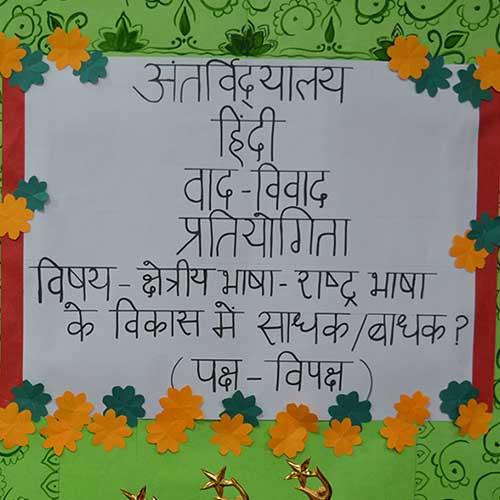 अंतर्विद्यालय
हिंदी
वाद-विवाद
प्रतियोगिता
विषय - क्षेत्रीय भाषा - राष्ट्र भाषा
के विकास में साधक/बाधक?
(पक्ष - विपक्ष)